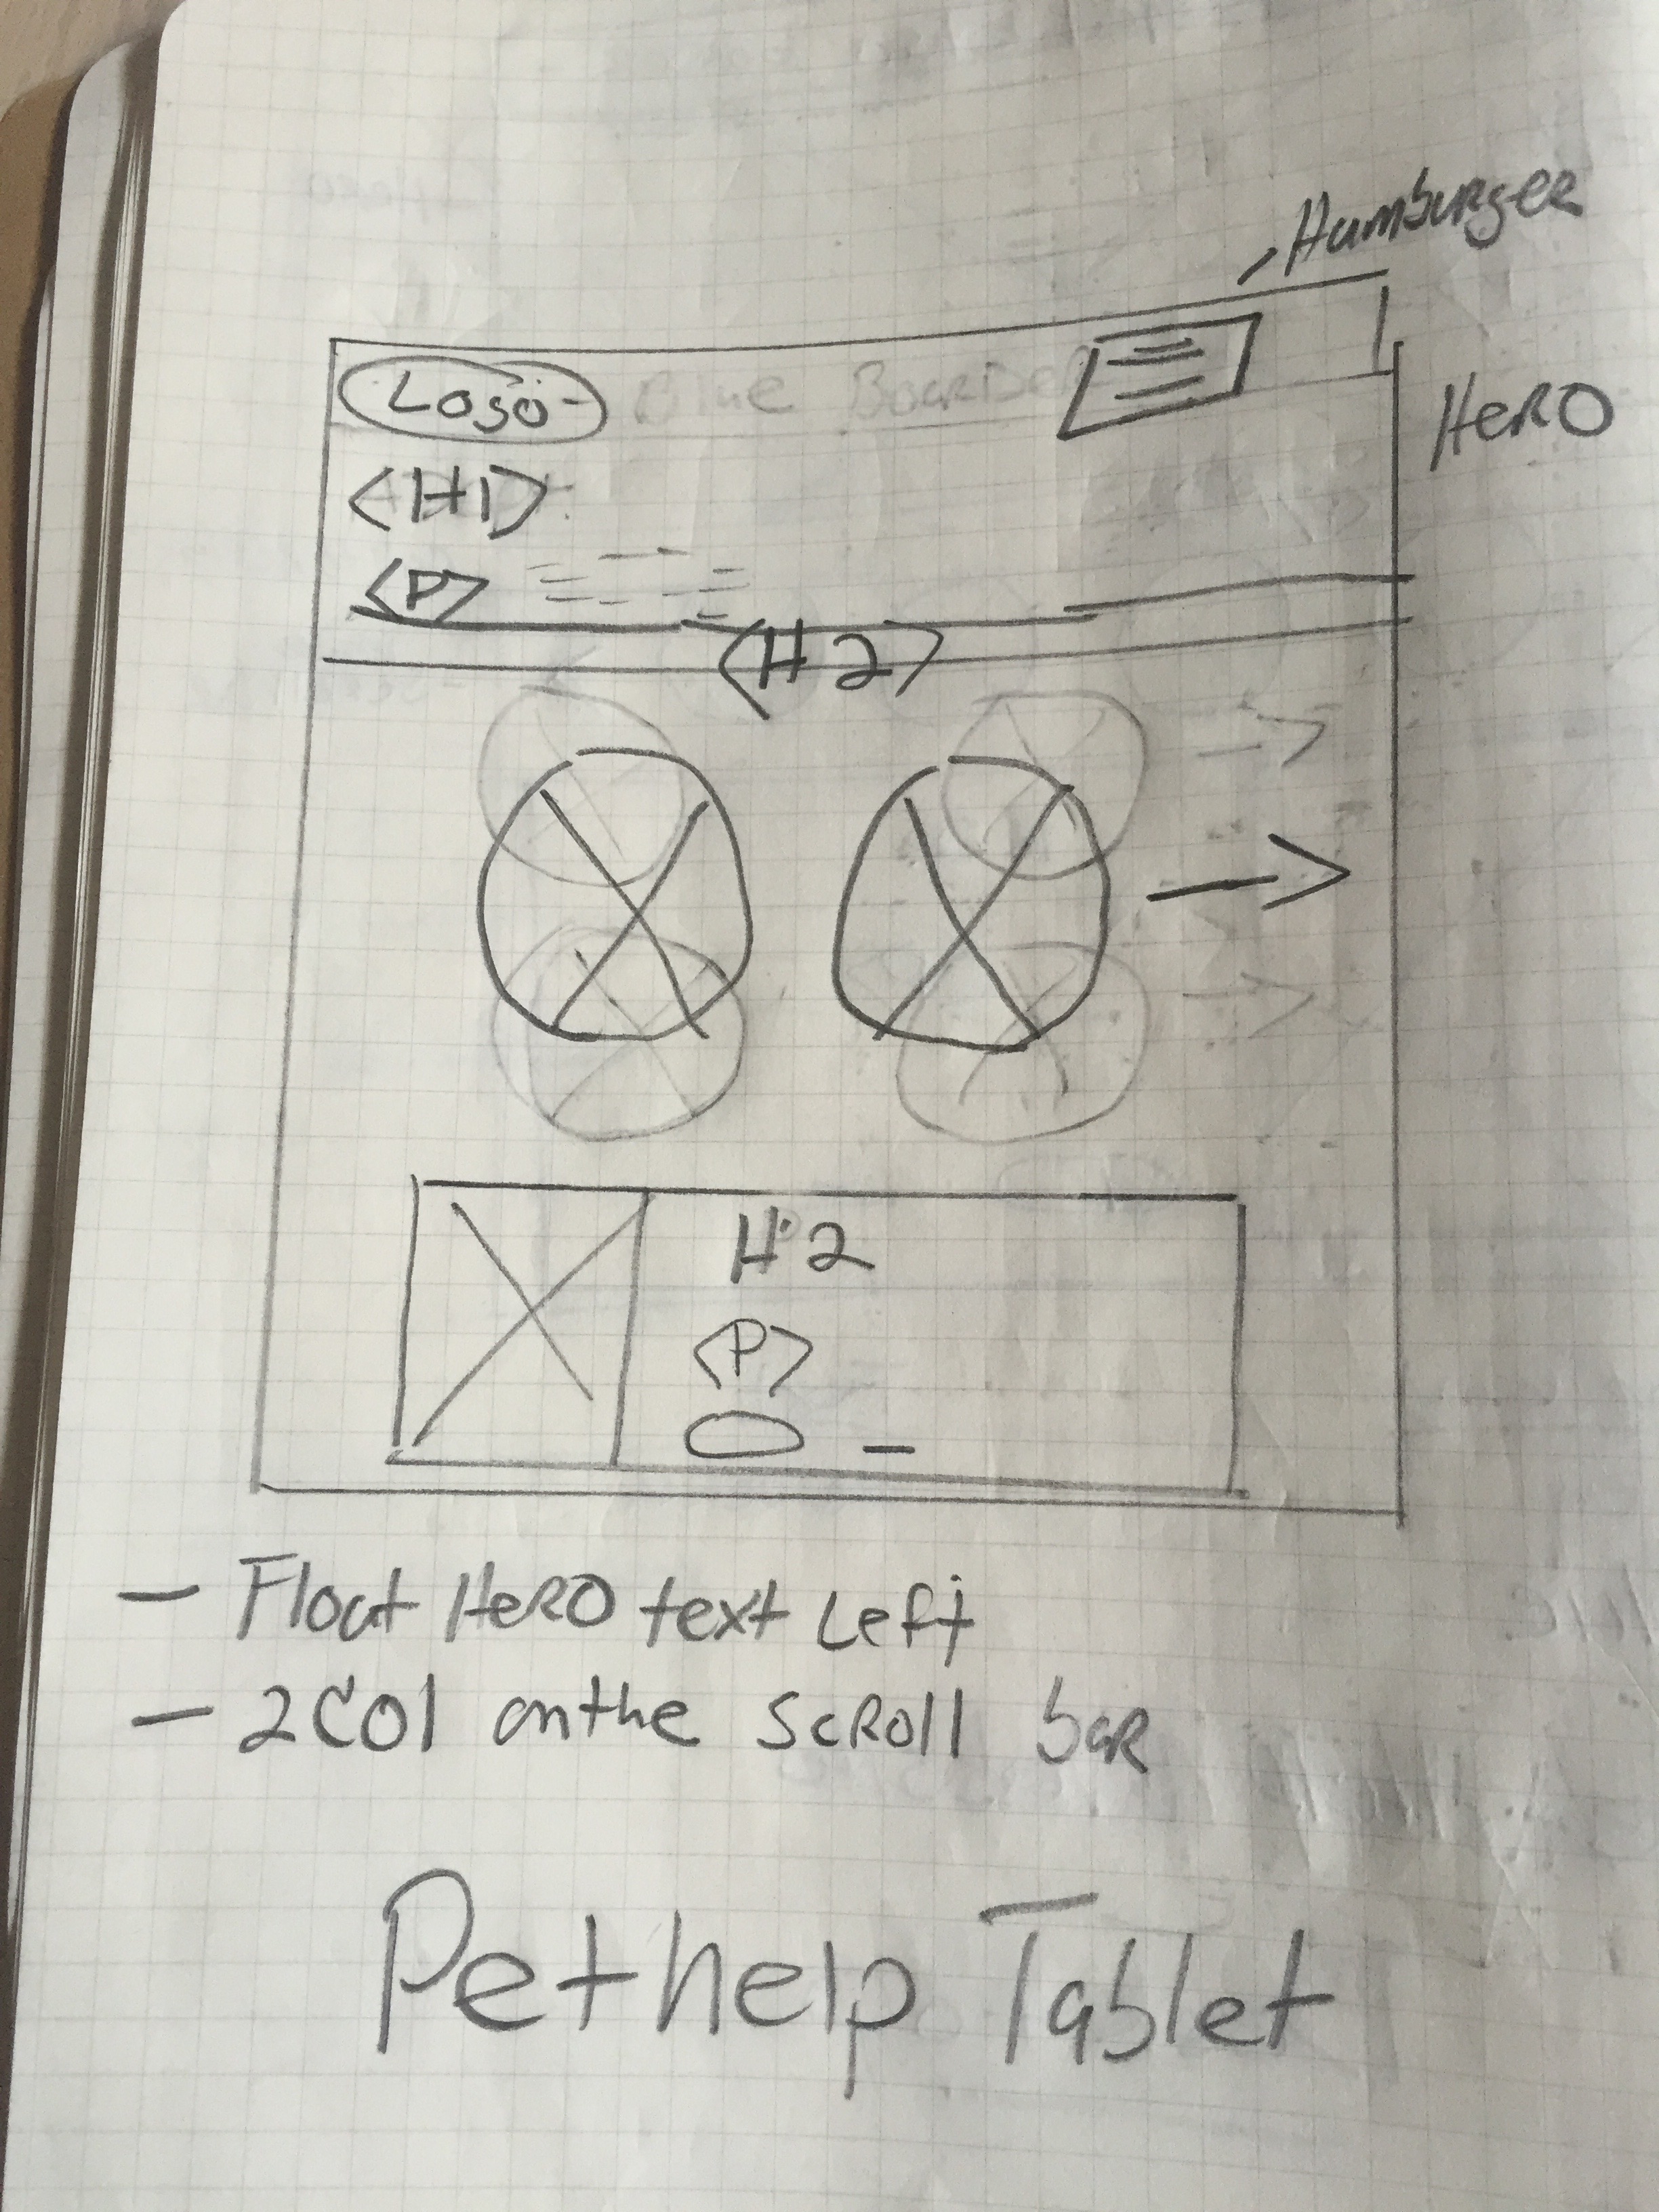 Hamburger
Logo Blue Boarder
Hero
<H1>
<P>
<H2>
H2
<P>
- Float Hero text Left
- 2 Col on the Scroll bar
Pet help Tablet